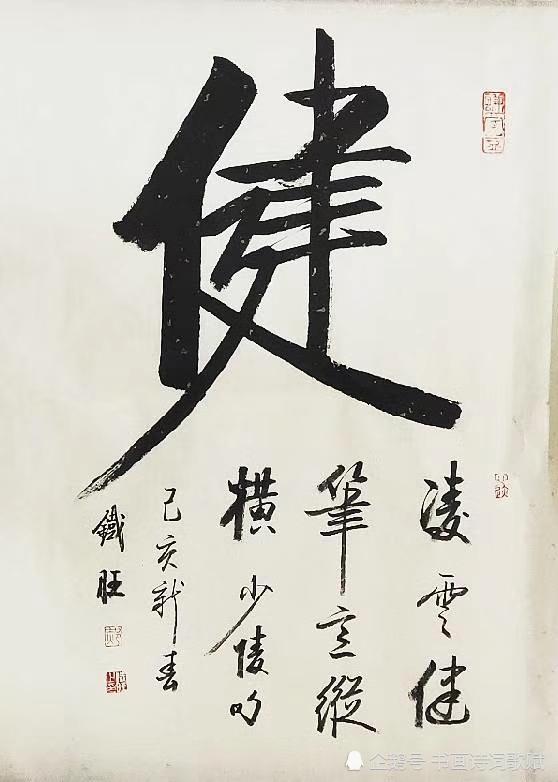 健
凌雲健
筆意縱
橫少陵句
己亥新春
鐵旺
企鹅号 书画诗词歌赋